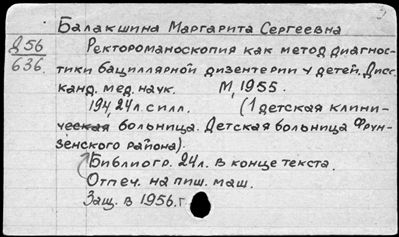 Балакшина Маргарита Сергеевна
Д56
636
Ректороманоскопия как метод диагнос-
тики бациллярной дизентерии у детей. Дисс.
канд. мед. наук. М, 1955.
194, 24 л. с илл. (1 детская клини-
ческая больница. Детская больница Фрун-
зенского района).
Библиогр. 24л. в конце текста.
Отпеч. на пиш. маш.
Защ. в 1956.г.